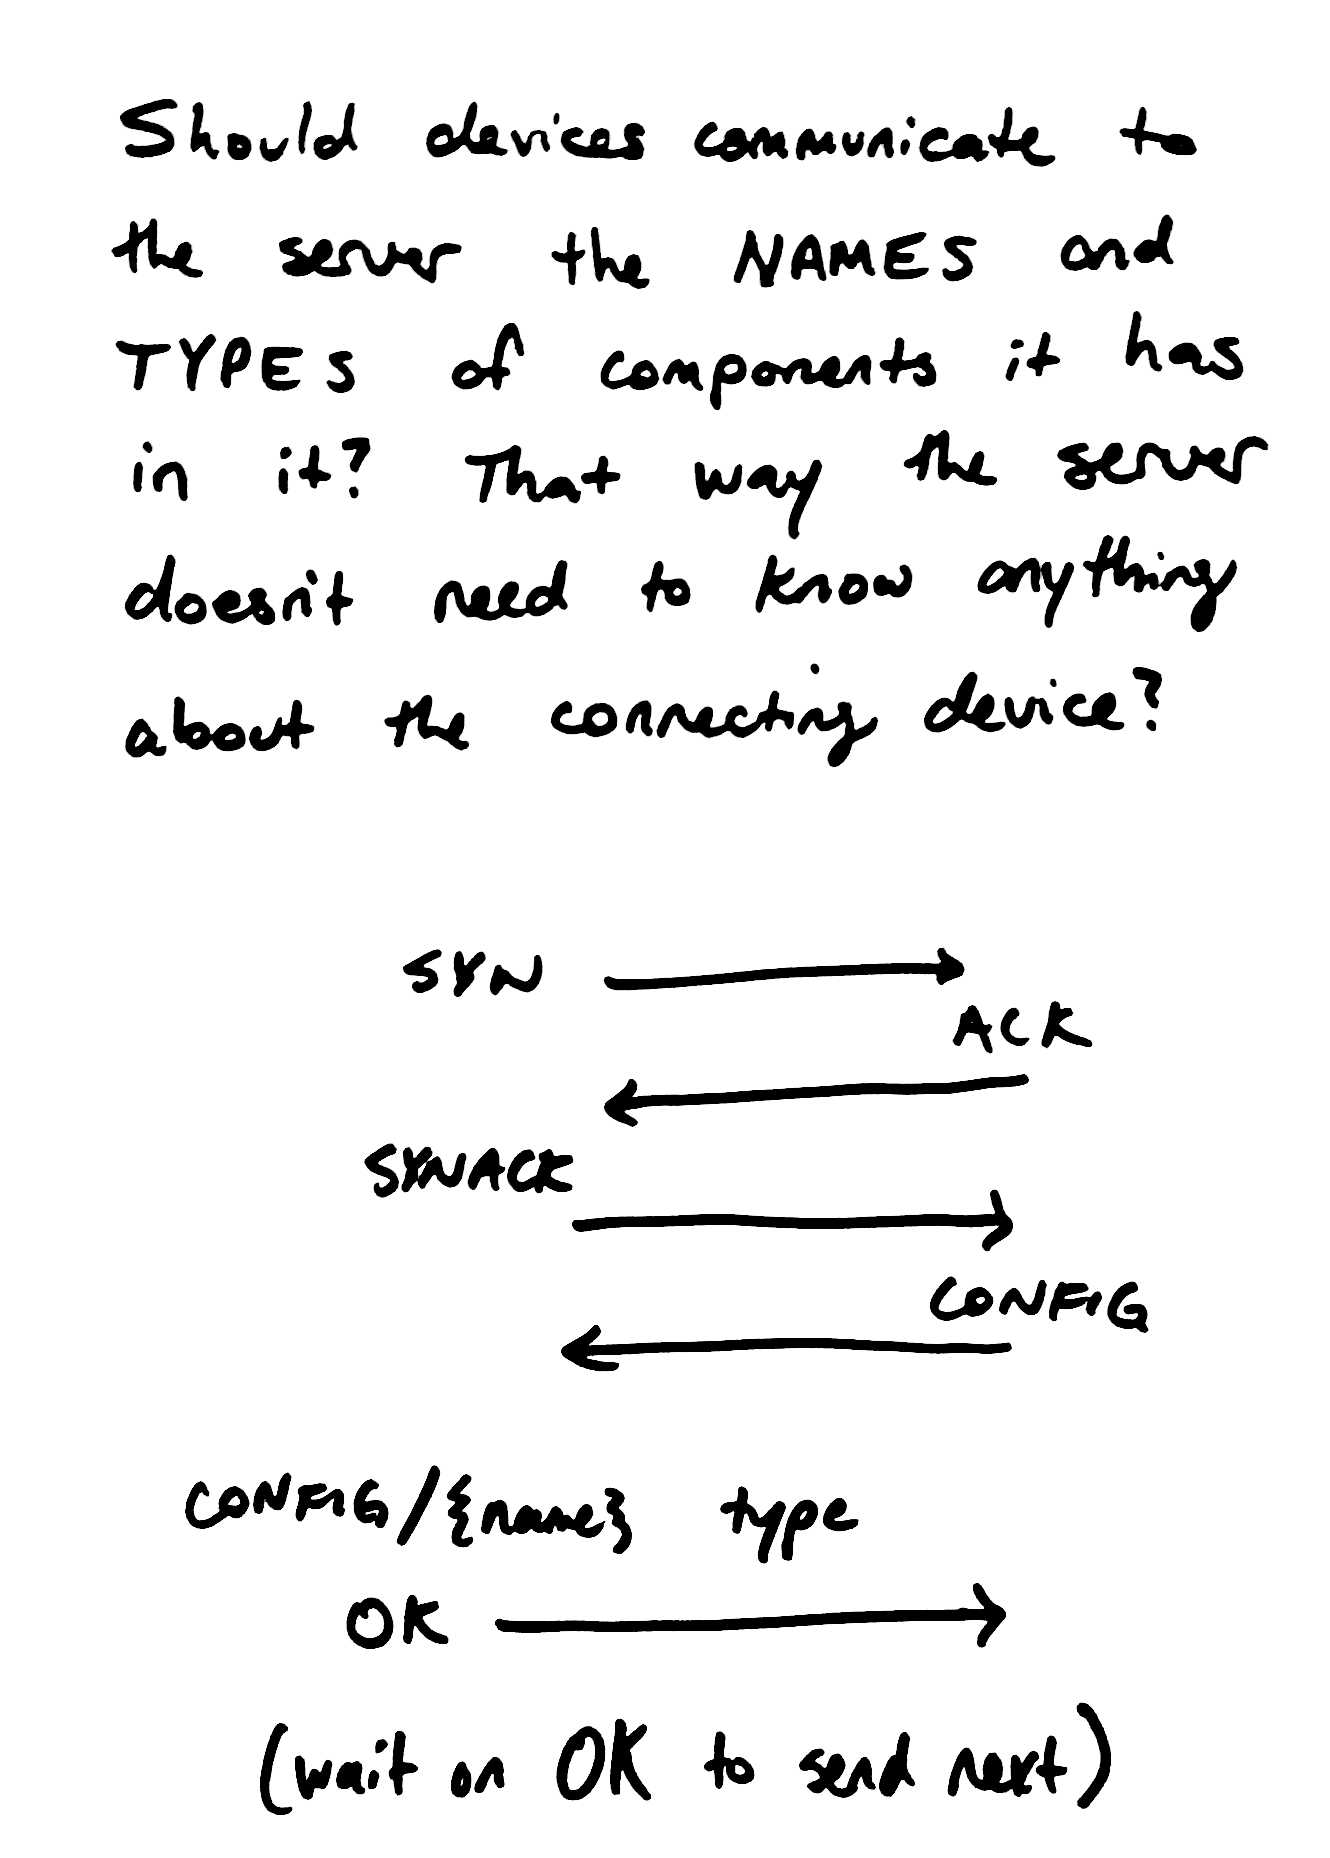 Should devices communicate to
the server the NAMES and
TYPES of components it has
in it? That way the server
doesn't need to know anything
about the connecting device?
SYN
ACK
SYNACK
CONFIG
CONFIG/{name} type
OK
(wait on OK to send next)